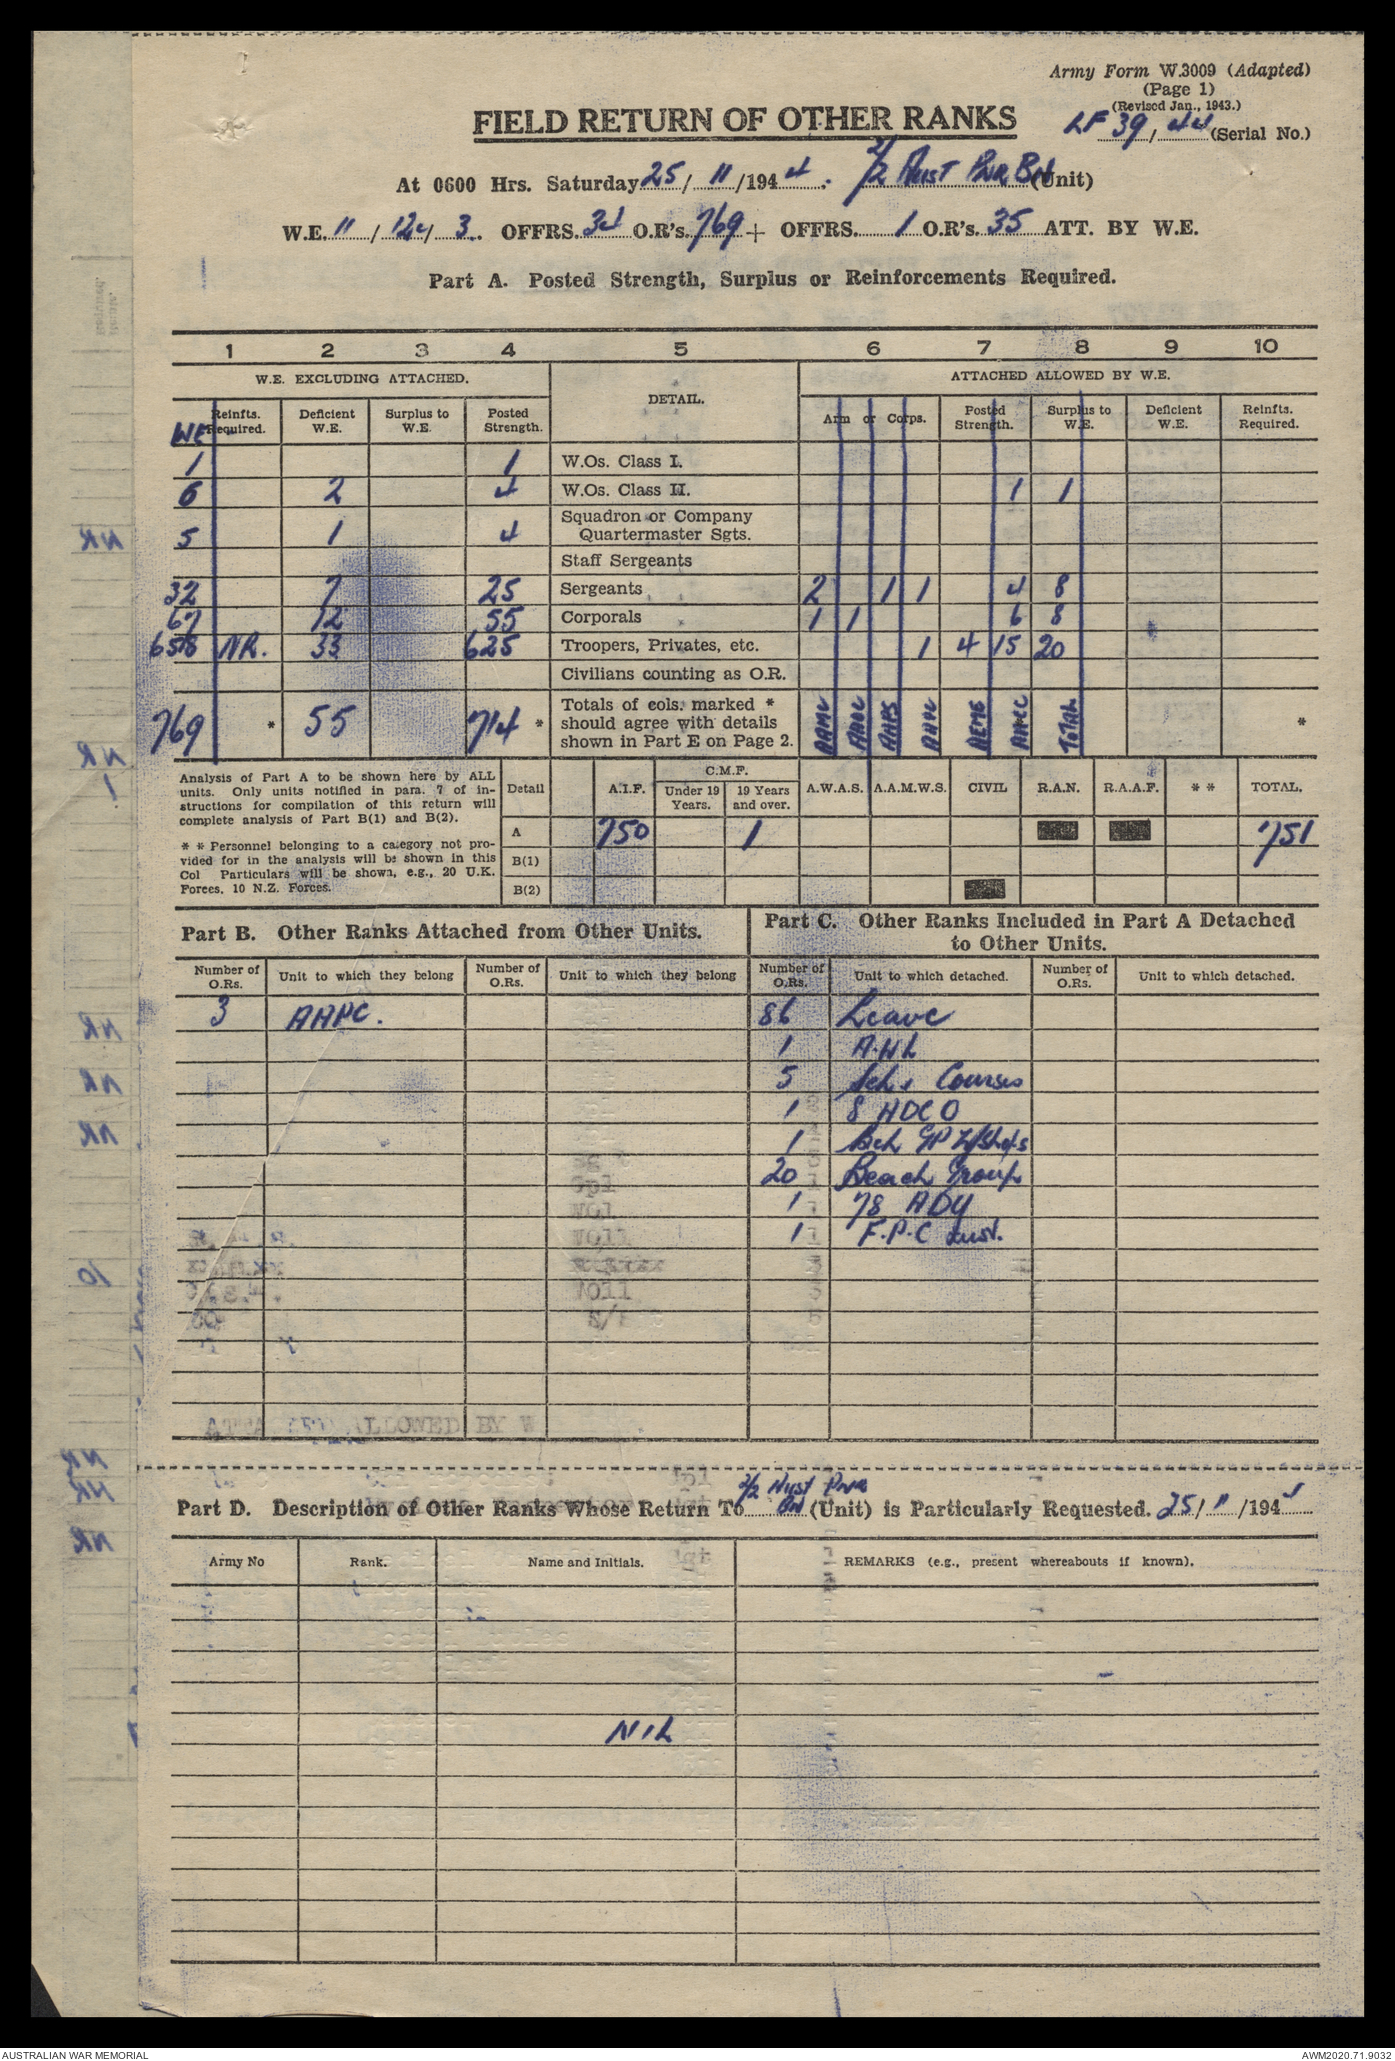 Army Form W.3009 (Adapted)
(Page 1)
(Revised Jan., 1943.)
FIELD RETURN OF OTHER RANKS
LF 39 / 44 (Serial No.)
At 0600 Hrs. Saturday 25 / 11 /194 4 . 2/2 Aust Pnr Bn (Unit)
W.E. 11 / 124 / 3 . OFFRS. 34 O.R's. 769 + OFFRS. 1 O.R's. 35 ATT. BY W.E.
Part A. Posted Strength, Surplus or Reinforcements Required.
1 2 3 4 5 6 7 8 9 10
W.E. EXCLUDING ATTACHED. DETAIL. ATTACHED ALLOWED BY W.E.
WE Reinfts. Required. Deficient W.E. Surplus to W.E. Posted Strength. Arm or Corps. Posted Strength. Surplus to W.E. Deficient W.E. Reinfts. Required.
1 1 W.Os. Class I.
6 2 4 W.Os. Class II. 1 1
5 1 4 Squadron or Company
Quartermaster Sgts.
Staff Sergeants
32 7 25 Sergeants 2 1 1 4 8
67 12 55 Corporals 1 1 6 8
658 NR. 33 625 Troopers, Privates, etc. 1 4 15 20
Civilians counting as O.R.
769 * 55 714 * Totals of cols. marked *
should agree with details
shown in Part E on Page 2. AAMC AAOC AAPS AEME AACC TOTAL *
Analysis of Part A to be shown here by ALL
units. Only units notified in para. 7 of in-
structions for compilation of this return will
complete analysis of Part B(1) and B(2).
* * Personnel belonging to a category not pro-
vided for in the analysis will be shown in this
Col Particulars will be shown, e.g., 20 U.K.
Forces, 10 N.Z. Forces.
Detail A.I.F. C.M.F. Under 19 Years. 19 Years and over. A.W.A.S. A.A.M.W.S. CIVIL R.A.N. R.A.A.F. * * TOTAL.
A 750 1 751
B(1)
B(2)
Part B. Other Ranks Attached from Other Units.
Part C. Other Ranks Included in Part A Detached
to Other Units.
Number of O.Rs. Unit to which they belong Number of O.Rs. Unit to which they belong Number of O.Rs. Unit to which detached. Number of O.Rs. Unit to which detached.
3 AAPC. 86 Leave
1 A.W.L
5 Schs Courses
1 8 ADCO
1 Bch GP W/Shops
20 Beach Group
1 78 ADU
1 F.P.C Aust.
ALLOWED BY W
Part D. Description of Other Ranks Whose Return To 2/2 Aust Pnr Bn (Unit) is Particularly Requested. 25 / 11 /194 4
Army No Rank. Name and Initials. REMARKS (e.g., present whereabouts if known).
NIL
AUSTRALIAN WAR MEMORIAL
AWM2020.71.9032